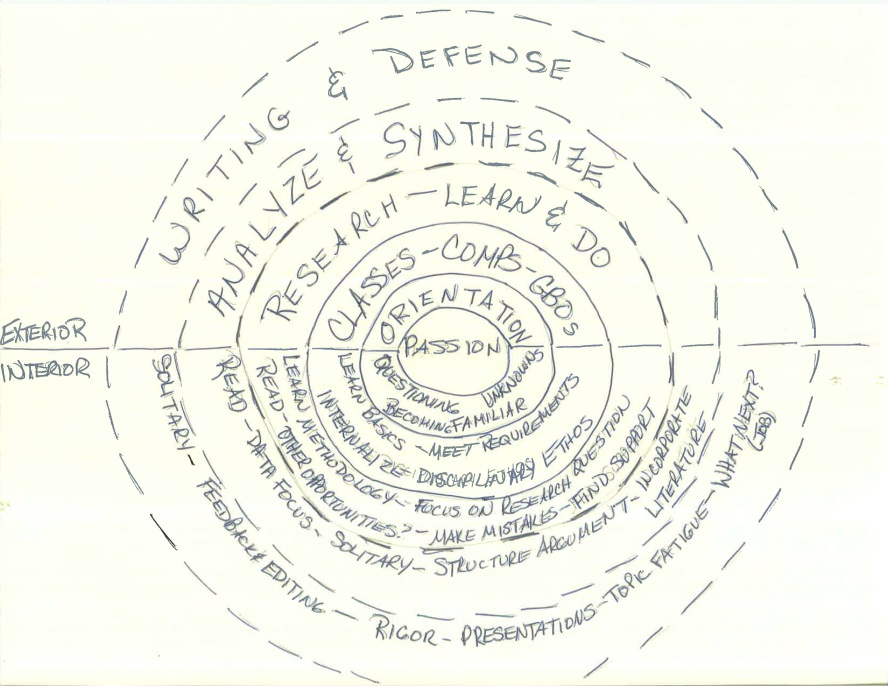 WRITING & DEFENSE
ANALYZE & SYNTHESIZE
RESEARCH - LEARN & DO
CLASSES - COMPS - GBOs
ORIENTATION
PASSION
EXTERIOR
INTERIOR
QUESTIONING UNKNOWNS
BECOMING FAMILIAR
LEARN BASICS - MEET REQUIREMENTS
INTERNALIZE DISCIPLINARY ETHOS
LEARN METHODOLOGY - FOCUS ON RESEARCH QUESTION
READ - OTHER OPPORTUNITIES? - MAKE MISTAKES - FIND SUPPORT
READ - DATA FOCUS - SOLITARY - STRUCTURE ARGUMENT - INCORPORATE LITERATURE
SOLITARY - FEEDBACK & EDITING - RIGOR - PRESENTATIONS - TOPIC FATIGUE - WHAT NEXT?
(JOB)